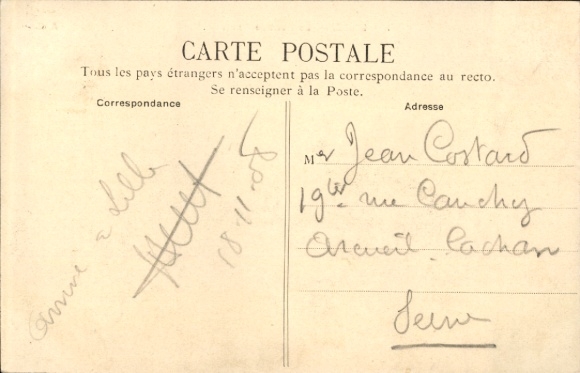 CARTE POSTALE
Tous les pays étrangers n'acceptent pas la correspondance au recto.
Se renseigner à la Poste.
Correspondance
Adresse
Arrivé à Lille
18-11-08
Mer Jean Costard
19ter rue Cauchy
Arcueil-Cachan
Seine